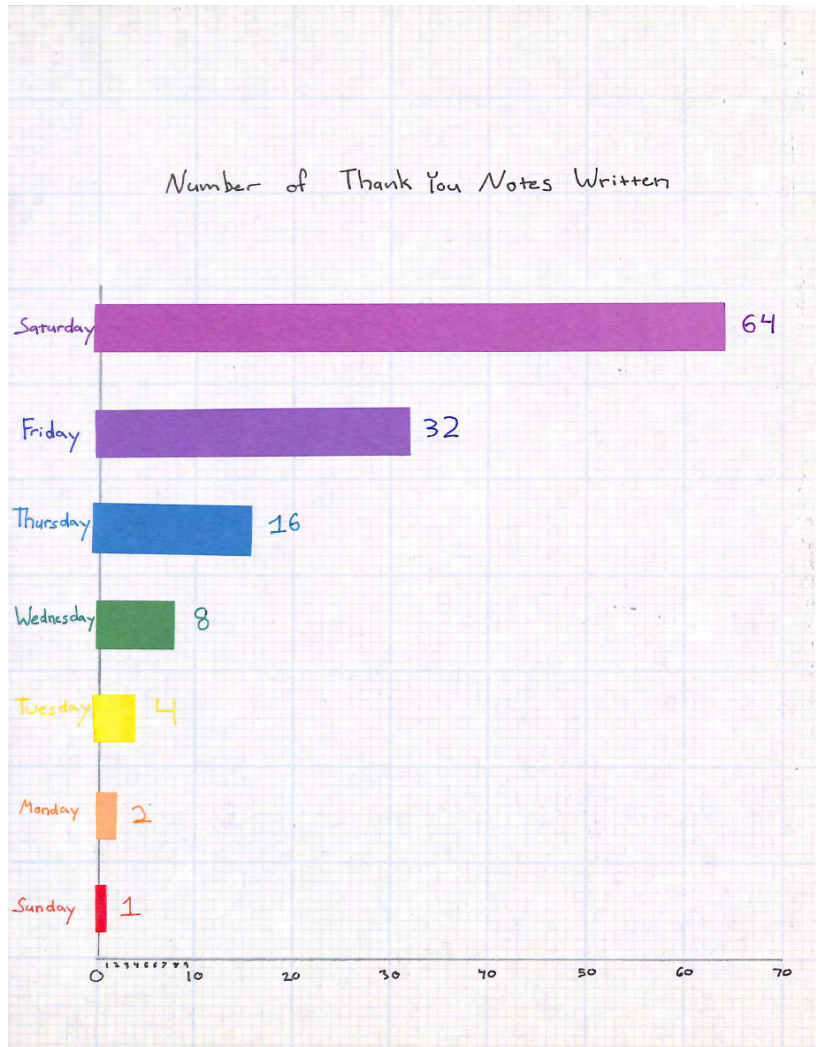 Number of Thank You Notes Written
Saturday 64
Friday 32
Thursday 16
Wednesday 8
Tuesday 4
Monday 2
Sunday 1
0 1 2 3 4 5 6 7 8 9 10 20 30 40 50 60 70